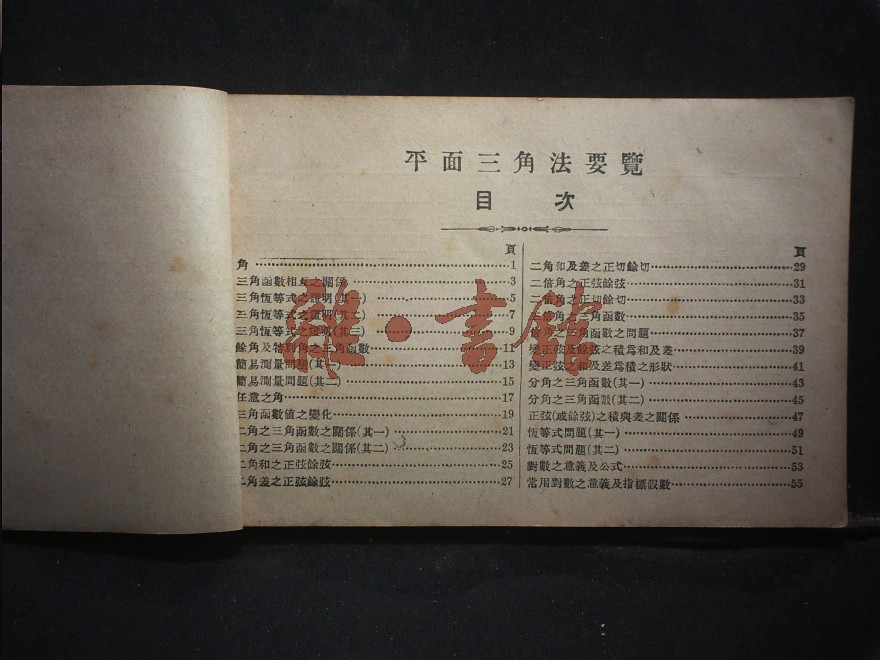 平面三角法要覽
目 次
頁
角 1
三角函數相互之關係 3
三角恆等式之證明(其一) 5
三角恆等式之證明(其二) 7
三角恆等式之證明(其三) 9
餘角及特別角之三角函數 11
簡易測量問題(其一) 13
簡易測量問題(其二) 15
任意之角 17
三角函數値之變化 19
二角之三角函數之關係(其一) 21
二角之三角函數之關係(其二) 23
二角和之正弦餘弦 25
二角差之正弦餘弦 27
頁
二角和及差之正切餘切 29
二倍角之正弦餘弦 31
二倍角之正切餘切 33
角之三角函數 35
倍角之三角函數之問題 37
變正弦及餘弦之積爲和及差 39
變正弦之和及差爲積之形狀 41
分角之三角函數(其一) 43
分角之三角函數(其二) 45
正弦(或餘弦)之積與差之關係 47
恆等式問題(其一) 49
恆等式問題(其二) 51
對數之意義及公式 53
常用對數之意義及指標假數 55
書館